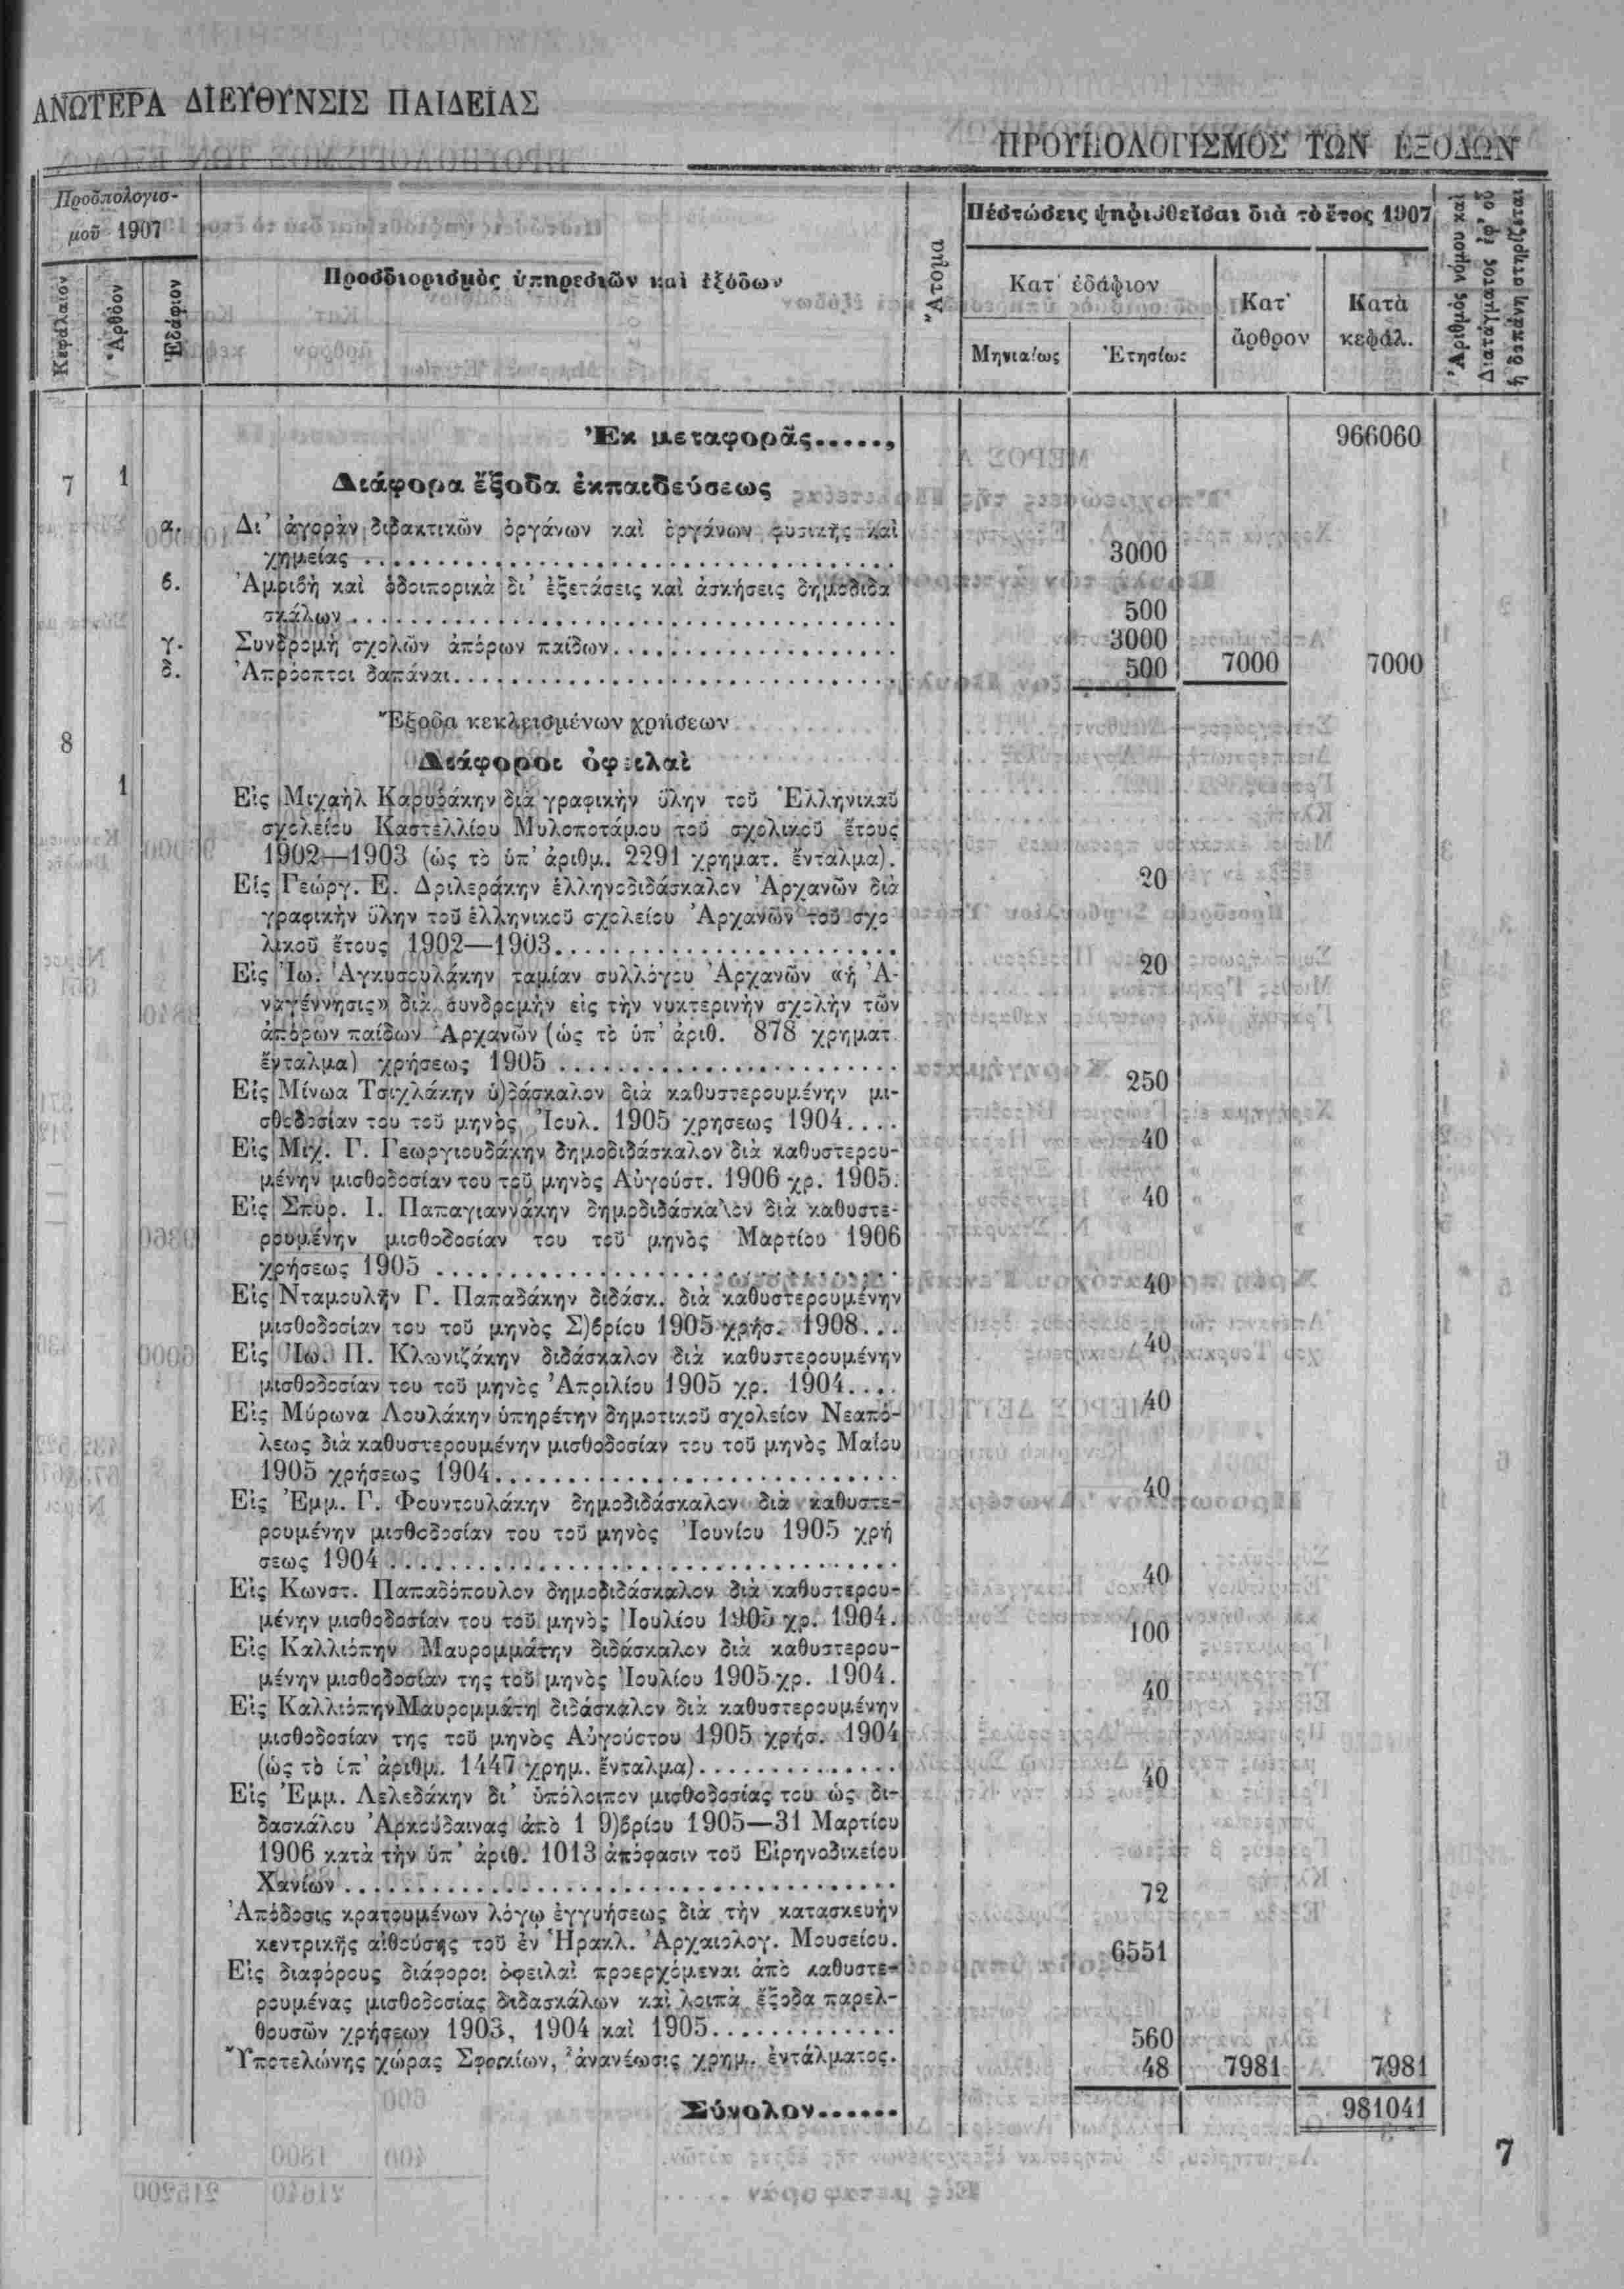 ΑΝΩΤΕΡΑ ΔΙΕΥΘΥΝΣΙΣ ΠΑΙΔΕΙΑΣ
ΠΡΟΥΠΟΛΟΓΙΣΜΟΣ ΤΩΝ ΕΞΟΔΩΝ
Προϋπολογισ-
μοῦ 1907
Κεφάλαιον
Ἄρθρον
Ἐδάφιον
Προσδιορισμὸς ὑπηρεσιῶν καὶ ἐξόδων
Ἄτομα
Πιστώσεις ψηφισθεῖσαι διὰ τὸ ἔτος 1907
Κατ' ἐδάφιον
Μηνιαίως
Ἐτησίως
Κατ'
ἄρθρον
Κατὰ
κεφάλ.
Ἀριθμὸς νόμου καὶ
Διατάγματος ἐφ' οὗ
ἡ δαπάνη στηρίζεται
Ἐκ μεταφορᾶς....., 966060
7 1 Διάφορα ἔξοδα ἐκπαιδεύσεως
α. Δι' ἀγορὰν διδακτικῶν ὀργάνων καὶ ὀργάνων φυσικῆς καὶ
χημείας ........ 3000
β. Ἀμοιβὴ καὶ ὁδοιπορικὰ δι' ἐξετάσεις καὶ ἀσκήσεις δημοδιδα
σκάλων ........ 500
γ. Συνδρομὴ σχολῶν ἀπόρων παίδων........ 3000
δ. Ἀπρόοπτοι δαπάναι........ 500 7000 7000
8 Ἔξοδα κεκλεισμένων χρήσεων
1 Διάφοροι ὀφειλαὶ
Εἰς Μιχαὴλ Καρυδάκην διὰ γραφικὴν ὕλην τοῦ Ἑλληνικοῦ
σχολείου Καστελλίου Μυλοποτάμου τοῦ σχολικοῦ ἔτους
1902—1903 (ὡς τὸ ὑπ' ἀριθμ. 2291 χρηματ. ἔνταλμα). 20
Εἰς Γεώργ. Ε. Δριλεράκην ἑλληνοδιδάσκαλον Ἀρχανῶν διὰ
γραφικὴν ὕλην τοῦ ἑλληνικοῦ σχολείου Ἀρχανῶν τοῦ σχο
λικοῦ ἔτους 1902—1903........ 20
Εἰς Ἰω. Ἀγκυσουλάκην ταμίαν συλλόγου Ἀρχανῶν «ἡ Ἀ-
ναγέννησις» διὰ συνδρομὴν εἰς τὴν νυκτερινὴν σχολὴν τῶν
ἀπόρων παίδων Ἀρχανῶν (ὡς τὸ ὑπ' ἀριθ. 878 χρηματ.
ἔνταλμα) χρήσεως 1905 ........ 250
Εἰς Μίνωα Τσιχλάκην ὑ)δάσκαλον διὰ καθυστερουμένην μι-
σθοδοσίαν του τοῦ μηνὸς Ἰουλ. 1905 χρησεως 1904.... 40
Εἰς Μιχ. Γ. Γεωργιουδάκην δημοδιδάσκαλον διὰ καθυστερου-
μένην μισθοδοσίαν του τοῦ μηνὸς Αὐγούστ. 1906 χρ. 1905. 40
Εἰς Σπυρ. Ι. Παπαγιαννάκην δημοδιδάσκαλον διὰ καθυστε-
ρουμένην μισθοδοσίαν του τοῦ μηνὸς Μαρτίου 1906
χρήσεως 1905 ........ 40
Εἰς Νταμουλῆν Γ. Παπαδάκην διδάσκ. διὰ καθυστερουμένην
μισθοδοσίαν του τοῦ μηνὸς Σ)βρίου 1905 χρήσ. 1908... 40
Εἰς Ἰω. Π. Κλωνιζάκην διδάσκαλον διὰ καθυστερουμένην
μισθοδοσίαν του τοῦ μηνὸς Ἀπριλίου 1905 χρ. 1904.... 40
Εἰς Μύρωνα Λουλάκην ὑπηρέτην δημοτικοῦ σχολείον Νεαπό-
λεως διὰ καθυστερουμένην μισθοδοσίαν του τοῦ μηνὸς Μαΐου
1905 χρήσεως 1904........ 40
Εἰς Ἐμμ. Γ. Φουντουλάκην δημοδιδάσκαλον διὰ καθυστε-
ρουμένην μισθοδοσίαν του τοῦ μηνὸς Ἰουνίου 1905 χρή
σεως 1904 ........ 40
Εἰς Κωνστ. Παπαδόπουλον δημοδιδάσκαλον διὰ καθυστερου-
μένην μισθοδοσίαν του τοῦ μηνὸς Ἰουλίου 1905 χρ. 1904. 100
Εἰς Καλλιόπην Μαυρομμάτην διδάσκαλον διὰ καθυστερου-
μένην μισθοδοσίαν της τοῦ μηνὸς Ἰουλίου 1905 χρ. 1904. 40
Εἰς Καλλιόπην Μαυρομμάτη διδάσκαλον διὰ καθυστερουμένην
μισθοδοσίαν της τοῦ μηνὸς Αὐγούστου 1905 χρήσ. 1904
(ὡς τὸ ὑπ' ἀριθμ. 1447 χρημ. ἔνταλμα)........ 40
Εἰς Ἐμμ. Λελεδάκην δι' ὑπόλοιπον μισθοδοσίας του ὡς δι-
δασκάλου Ἀρκούδαινας ἀπὸ 1 9)βρίου 1905—31 Μαρτίου
1906 κατὰ τὴν ὑπ' ἀριθ. 1013 ἀπόφασιν τοῦ Εἰρηνοδικείου
Χανίων........ 72
Ἀπόδοσις κρατουμένων λόγῳ ἐγγυήσεως διὰ τὴν κατασκευὴν
κεντρικῆς αἰθούσης τοῦ ἐν Ἡρακλ. Ἀρχαιολογ. Μουσείου. 6551
Εἰς διαφόρους διάφοροι ὀφειλαὶ προερχόμεναι ἀπὸ καθυστε-
ρουμένας μισθοδοσίας διδασκάλων καὶ λοιπὰ ἔξοδα παρελ-
θουσῶν χρήσεων 1903, 1904 καὶ 1905........ 560
Ὑποτελώνης χώρας Σφακίων, ἀνανέωσις χρημ. ἐντάλματος. 48 7981 7981
Σύνολον...... 981041
7